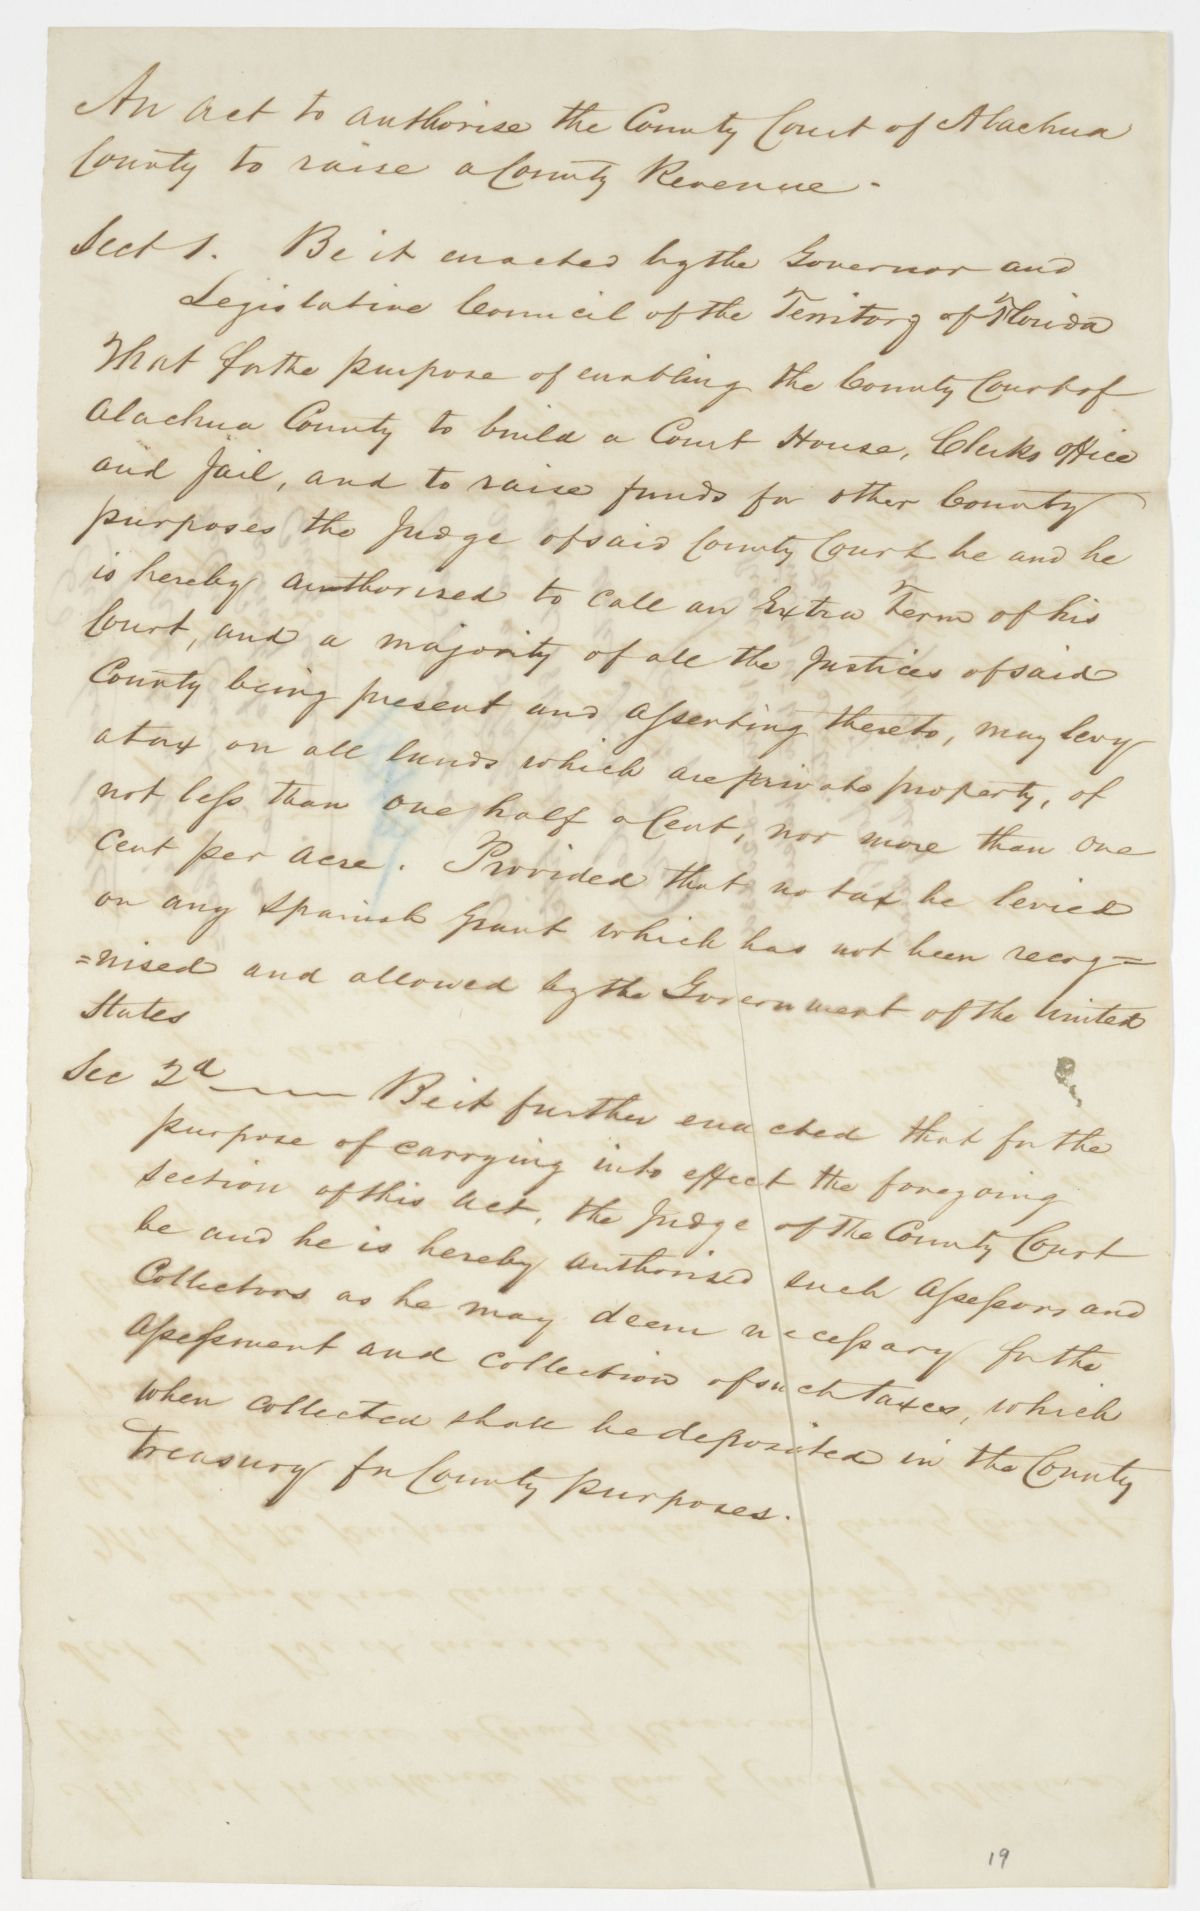 An act to authorise the County Court of Alachua
County to raise a County Revenue.
Sect 1. Be it enacted by the Governor and
Legislative Council of the Territory of Florida
That for the purpose of enabling the County Court of
Alachua County to build a Court House, Clerks office
and Jail, and to raise funds for other County
purposes the Judge of said County Court be and he
is hereby authorised to call an Extra Term of his
Court, and a majority of all the Justices of said
County being present and assenting thereto, may levy
a tax on all lands which are private property, of
not less than one half a Cent, nor more than one
Cent per acre. Provided that no tax be levied
on any Spanish grant which has not been recog=
=nised and allowed by the Government of the United
States
Sec 2d Be it further enacted that for the
purpose of carrying into effect the foregoing
section of this act, the Judge of the County Court
be and he is hereby authorised such assessors and
Collectors as he may deem necessary for the
assessment and collection of such taxes, which
when collected shall be deposited in the County
Treasury for County purposes.
19